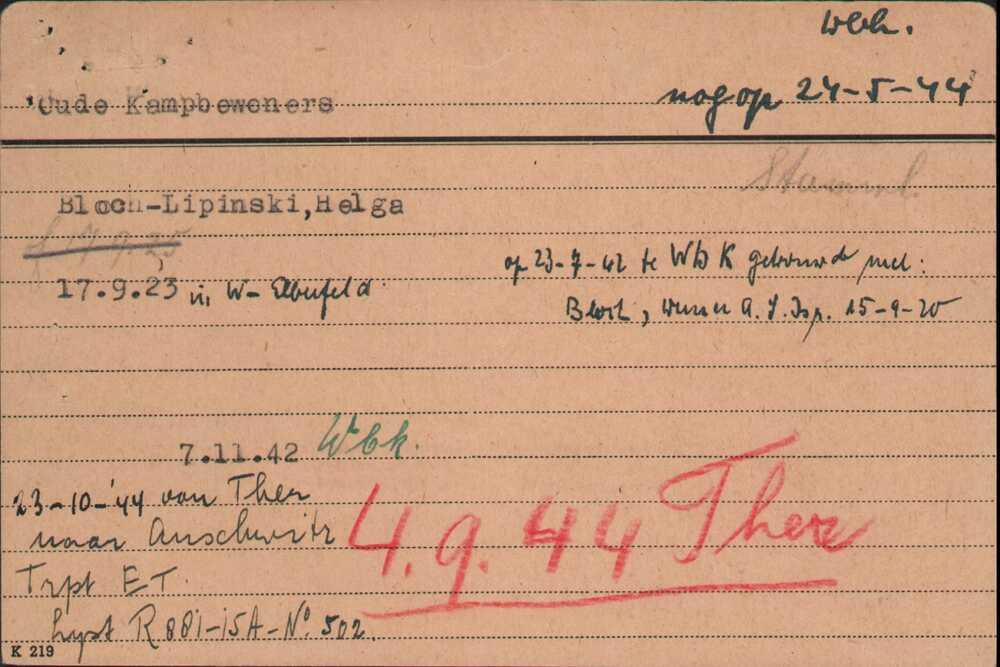 Wbk.
Oude Kampbewoners
nog op 24-5-44
Stamml.
Bloch-Lipinski,Helga
17.9.25
op 23-7-42 te WbK getrouwd met:
17.9.23 in W-Elberfeld
Bloch, Werner A. I. Isr. 15-9-20
7.11.42 Wbk.
23-10-'44 van Ther
naar Auschwitz
4.9.44 Ther
Trpt ET.
lyst R881-15A-No. 502.
K 219